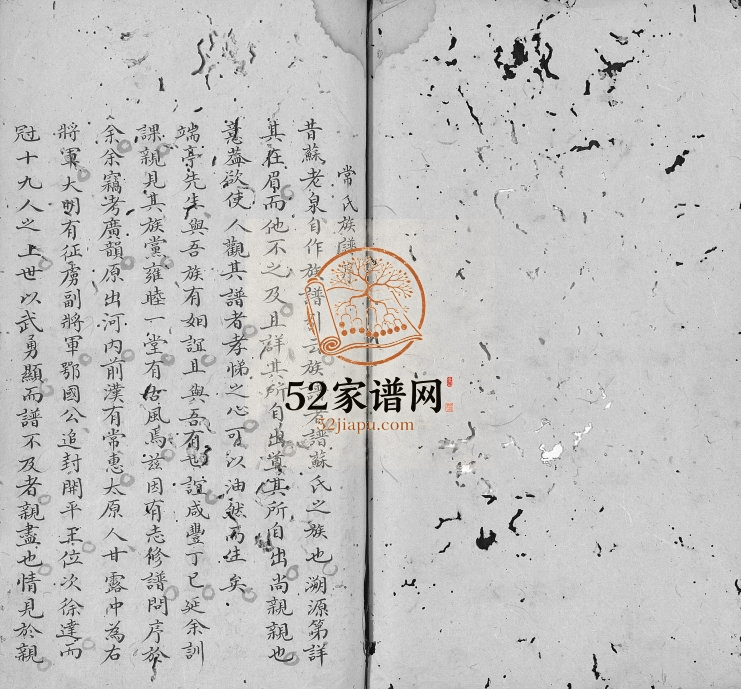 常氏族譜
昔蘇老泉自作族譜引云族譜蘇氏之族也溯源第詳
其在眉而他不之及且群其所自出尊其所自出尚親親也
意葢欲使人觀其譜者孝悌之心可以油然而生矣
端亭先生與吾族有姻誼且與吾有世誼咸豐丁巳延余訓
課親見其族黨雍睦一堂有古風焉兹因有志修譜問序於
余余竊考廣韻原出河內前漢有常惠太原人甘露中為右
將軍大明有征虜副將軍鄂國公追封開平王位次徐達而
冠十九人之上世以武勇顯而譜不及者親盡也情見於親
52家谱网
52jiapu.com